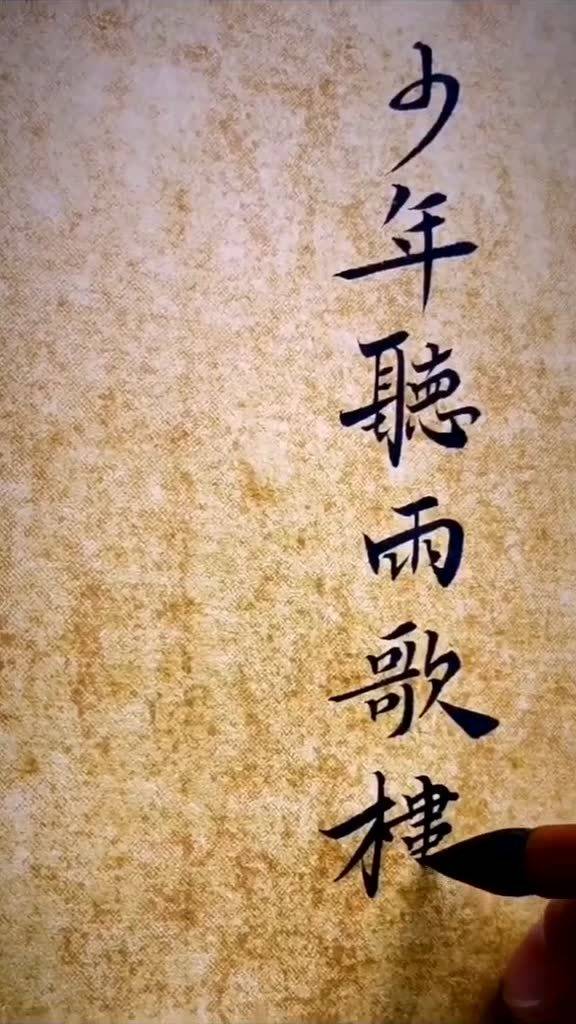 少年聽雨歌樓